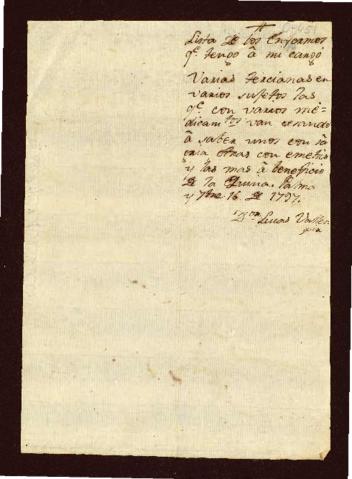 Lista de los Enfermos
q.e tengo â mi cargo
Varias tercianas en
varios sujetos las
q.e con varios me-
dicam.tos van cediendo
â saber unos con la
otras con emetico
y las mas â beneficio
de la Quina. Palma
y 16 de 1797.
D.on Lucas